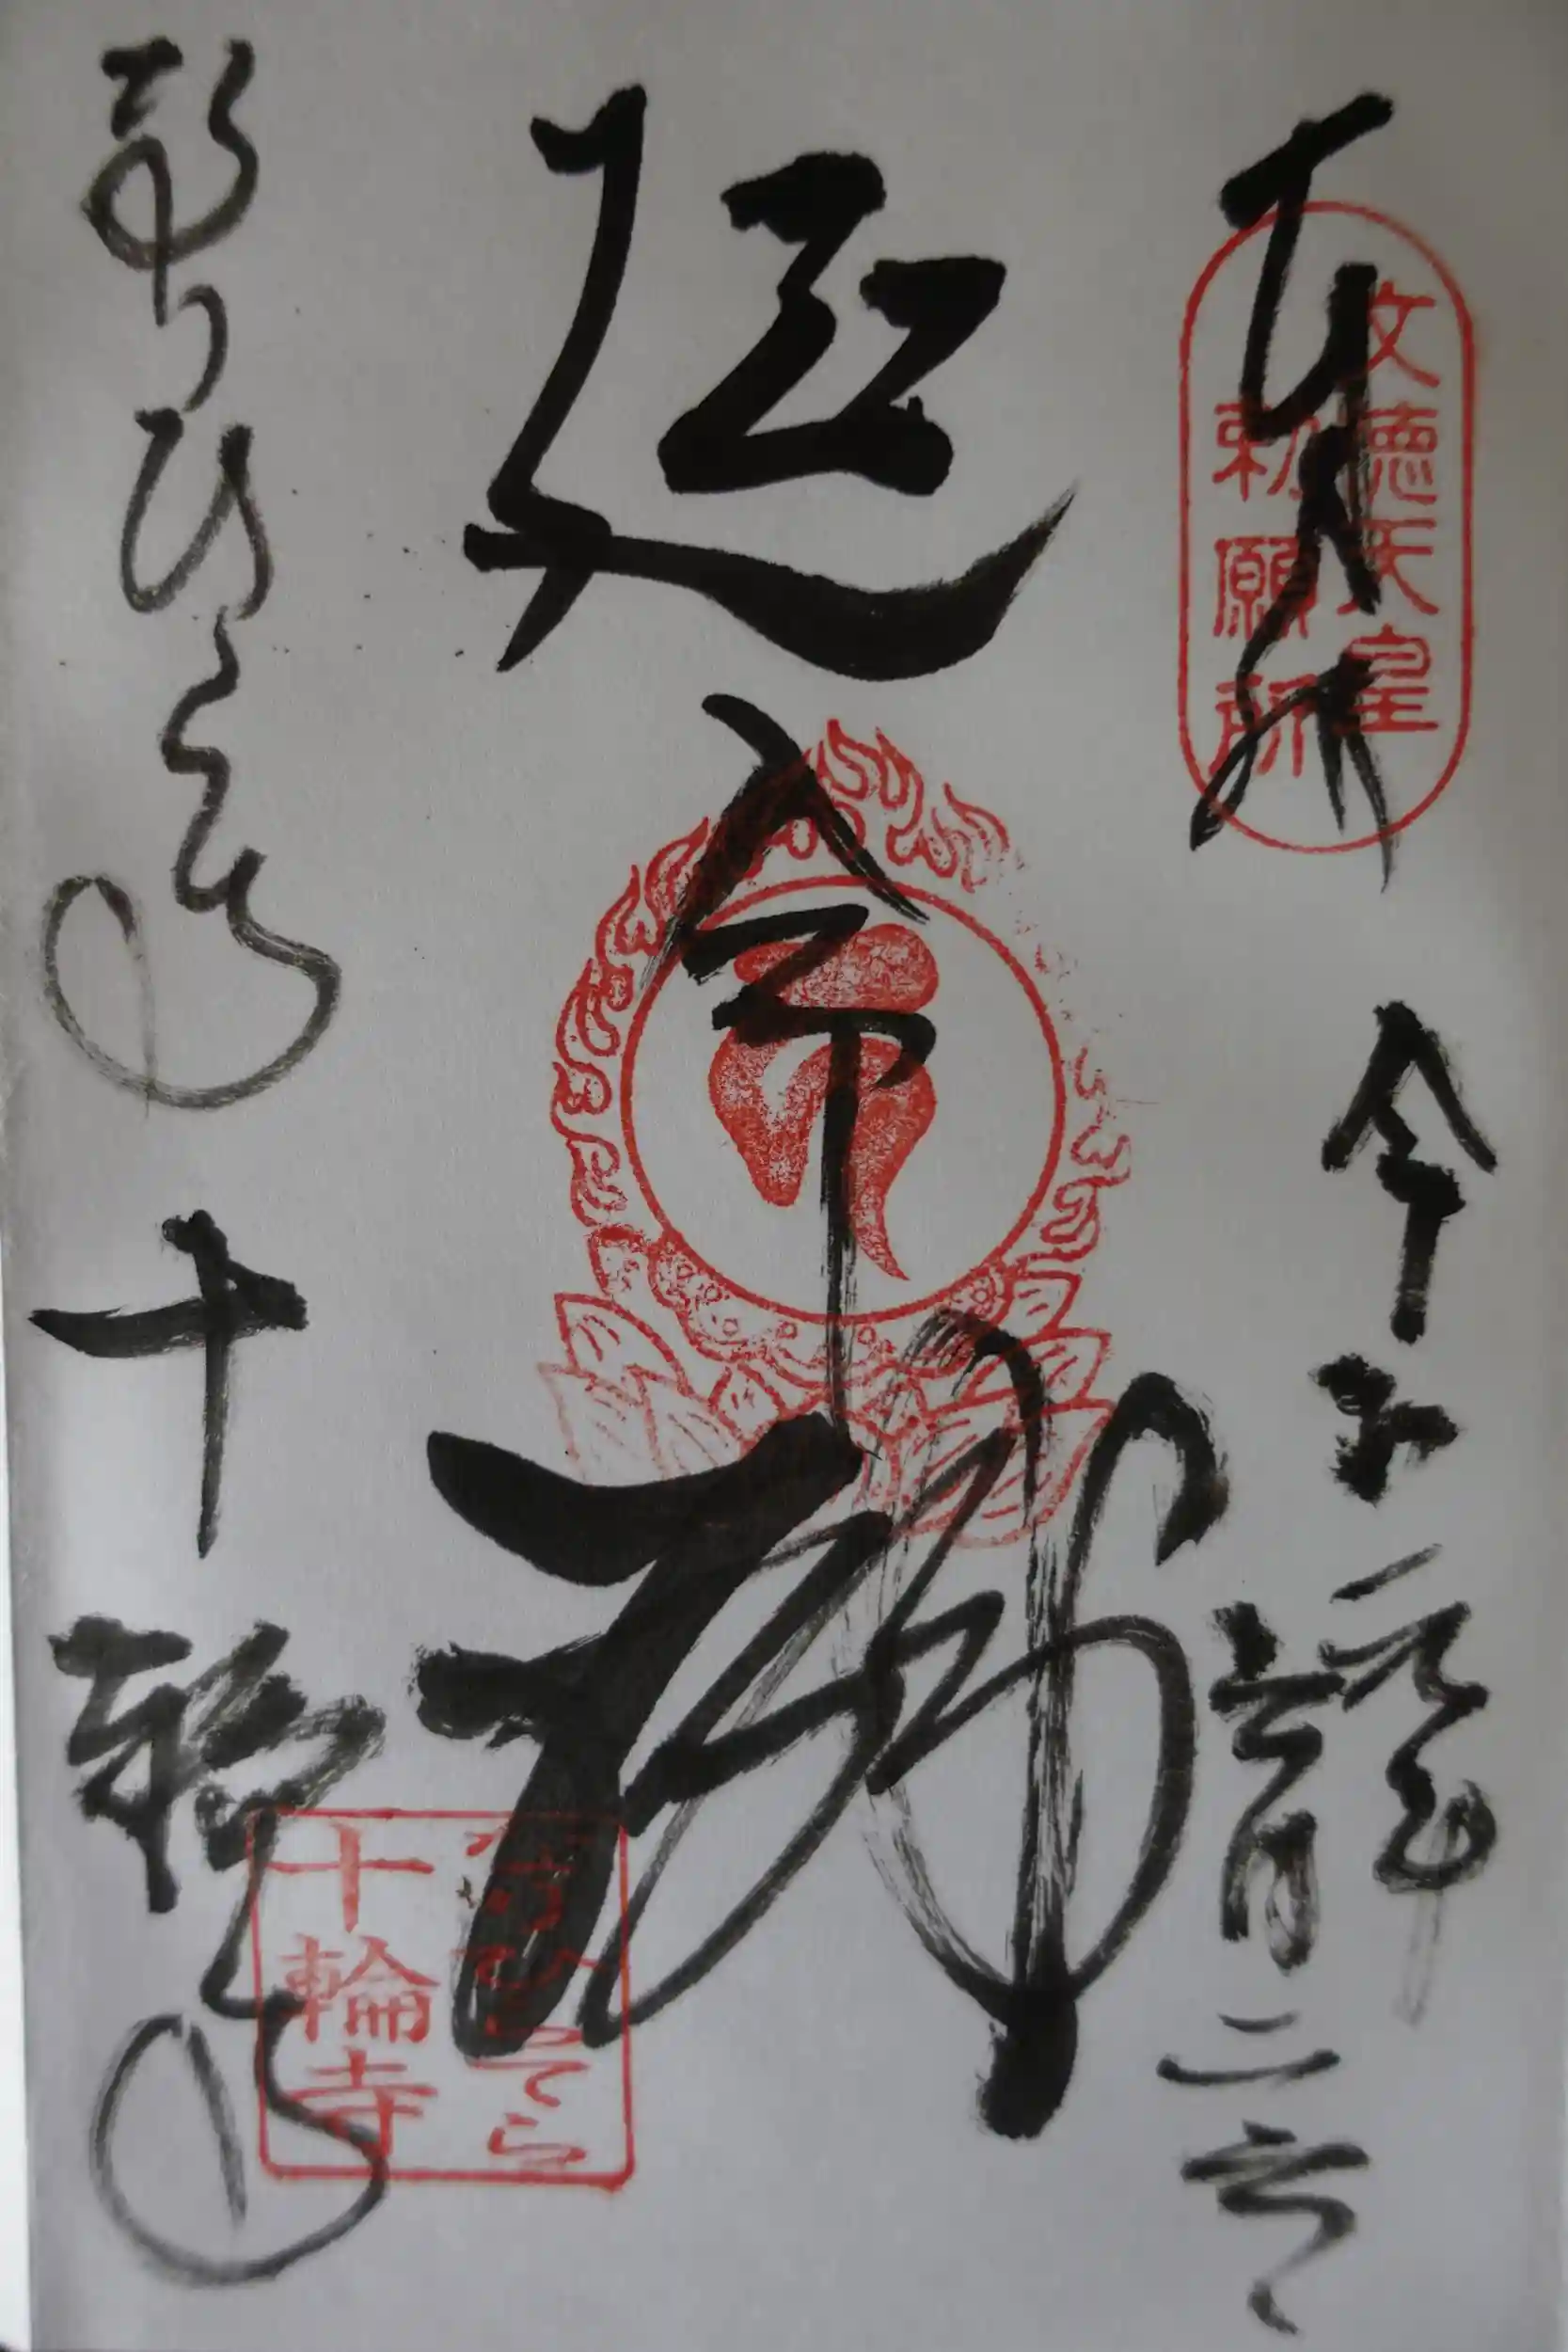 奉拝
令和二年
六月二六
文徳天皇
勅願所
延命
なりひらてら
十輪寺
なりひらてら
十輪寺